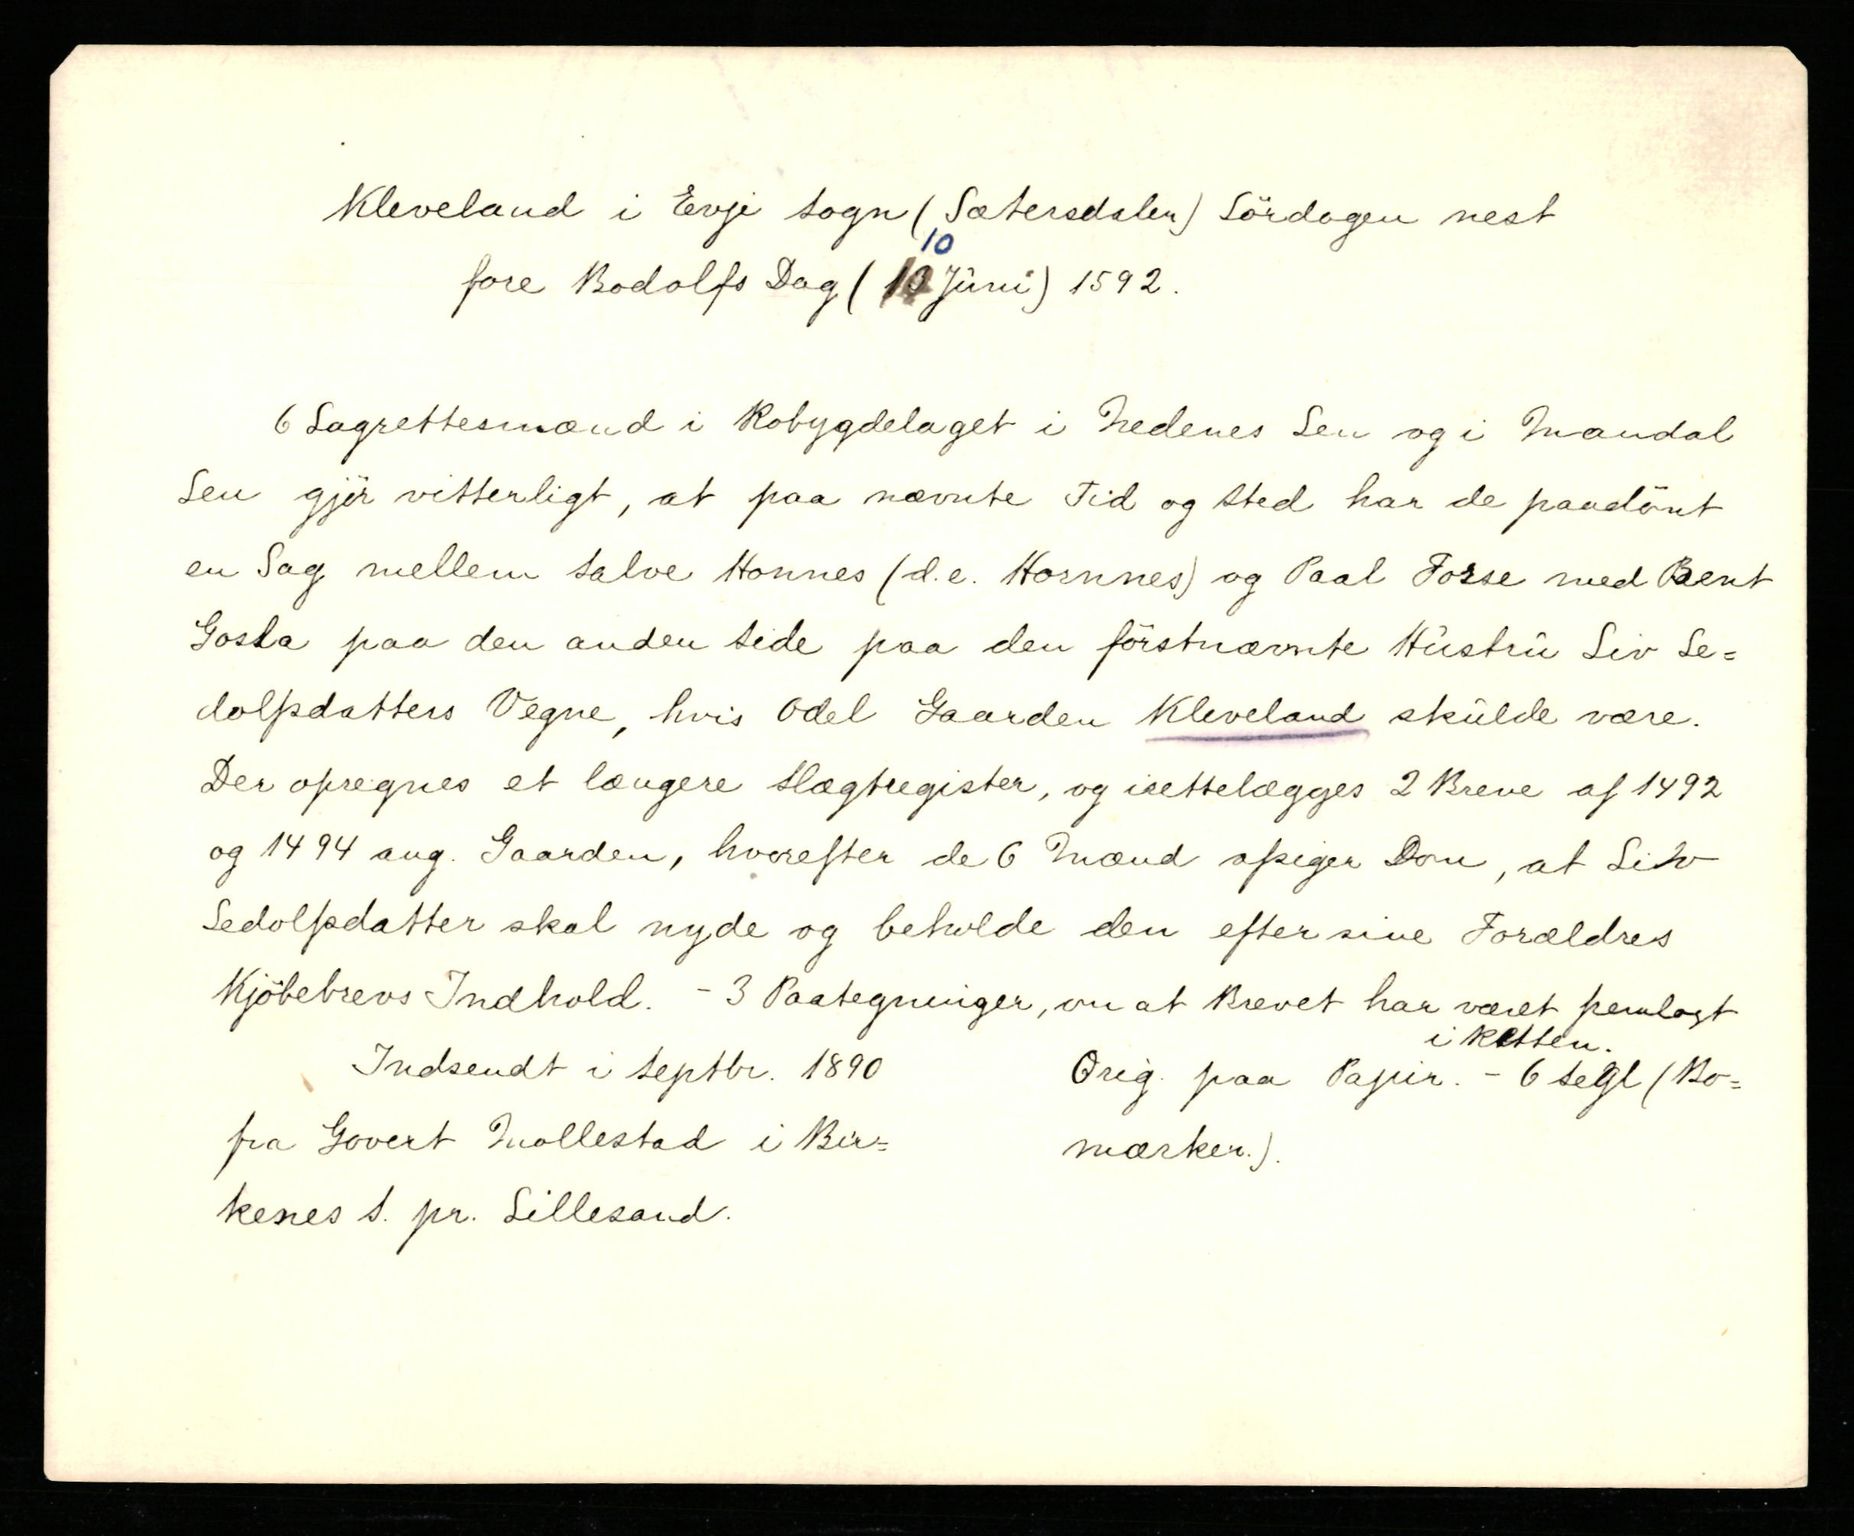 Kleveland i Evje sogn (Sætersdalen) Lördagen nest
10
fore Bodolfs Dag ( Juni) 1592.
6 Lagrettesmænd i Robygdelaget i Nedenes Len og i Mandal
Len gjör vitterligt, at paa nævnte Tid og Sted har de paadömt
en Sag mellem Salve Honnes (d.e. Hornnes) og Paal Forse med Bent
Gosta paa den anden Side paa den förstnævnte Hustru Liv Se=
dolfsdatters Vegne, hvis Odel Gaarden Kleveland skulde være.
Der opregnes et længere Slægtregister, og irettelægges 2 Breve af 1492
og 1494 ang. Gaarden, hvorefter de 6 Mænd afsiger Dom, at Liv
Sedolfsdatter skal nyde og beholde den efter sine Forældres
Kjöbebrevs Indhold. - 3 Paategninger, om at Brevet har været fremlagt
i Retten.
Indsendt i Septbr. 1890
fra Govert Mollestad i Bir=
kenes S. pr. Lillesand.
Orig. paa Papir. - 6 Segl (Bo=
mærker.).